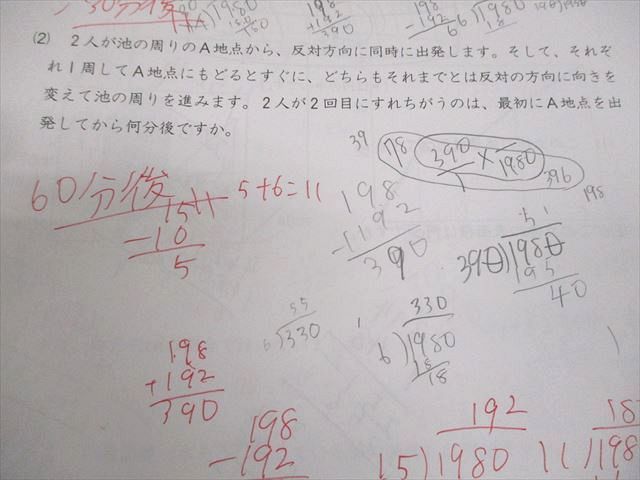 30分後
198
+192
390
1980
198
-192
66
1980
18
(2) 2人が池の周りのA地点から、反対方向に同時に出発します。そして、それぞ
れ1周してA地点にもどるとすぐに、どちらもそれまでとは反対の方向に向きを
変えて池の周りを進みます。2人が2回目にすれちがうのは、最初にA地点を出
発してから何分後ですか。
39
78
390 × 1980
1
396
198
60分後
5+6=11
15
-10
5
198
-192
390
51
390)1980
195
40
55
6)330
1
330
6)1980
18
18
198
+192
390
198
-192
192
15)1980
18
11)198